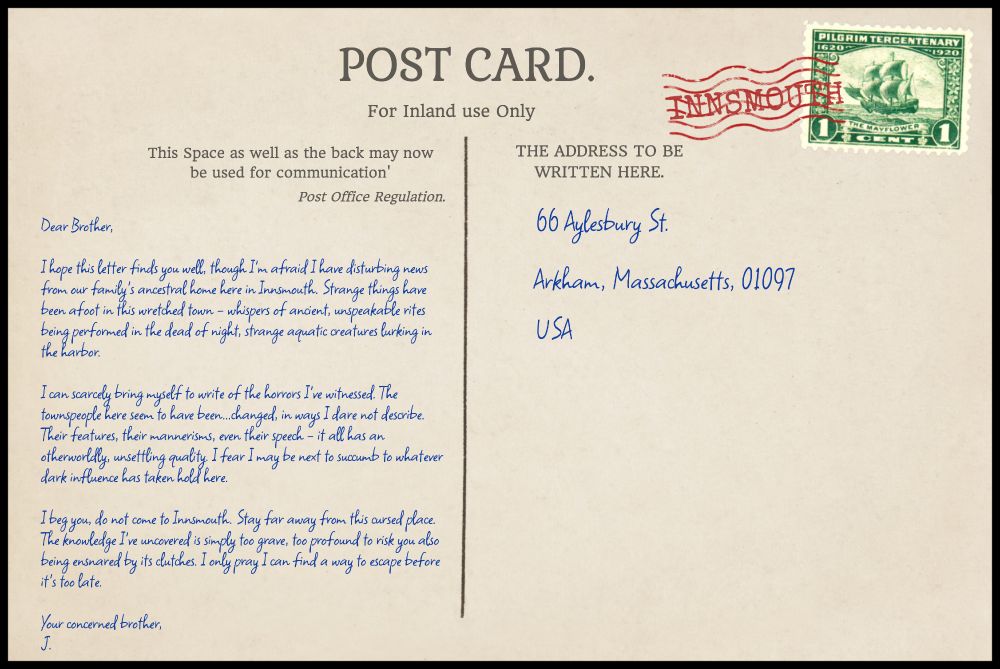 POST CARD.
For Inland use Only
This Space as well as the back may now
be used for communication'
Post Office Regulation.
Dear Brother,
I hope this letter finds you well, though I'm afraid I have disturbing news
from our family's ancestral home here in Innsmouth. Strange things have
been afoot in this wretched town – whispers of ancient, unspeakable rites
being performed in the dead of night, strange aquatic creatures lurking in
the harbor.
I can scarcely bring myself to write of the horrors I've witnessed. The
townspeople here seem to have been...changed, in ways I dare not describe.
Their features, their mannerisms, even their speech – it all has an
otherworldly, unsettling quality. I fear I may be next to succumb to whatever
dark influence has taken hold here.
I beg you, do not come to Innsmouth. Stay far away from this cursed place.
The knowledge I've uncovered is simply too grave, too profound to risk you also
being ensnared by its clutches. I only pray I can find a way to escape before
it's too late.
Your concerned brother,
J.
INNSMOUTH
PILGRIM TERCENTENARY
1620 1920
THE MAYFLOWER
1 CENT 1
THE ADDRESS TO BE
WRITTEN HERE.
66 Aylesbury St.
Arkham, Massachusetts, 01097
USA